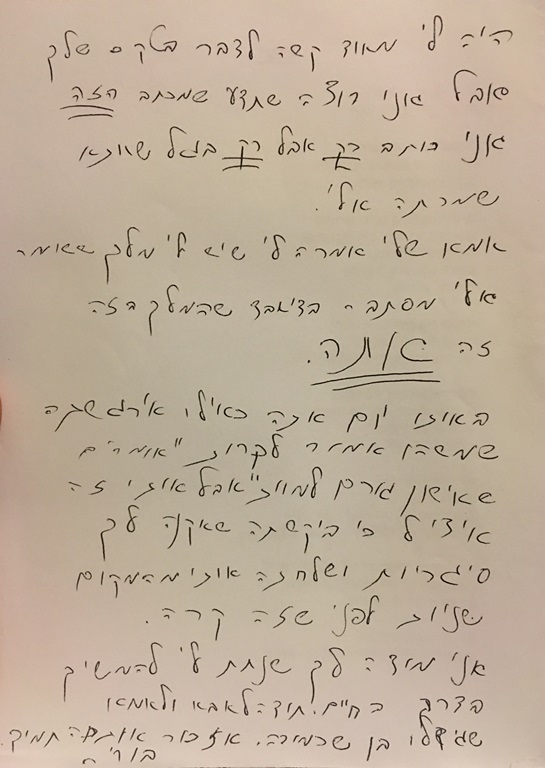 היה לי מאוד קשה לדבר בטקס שלך
אבל אני רוצה שתדע שמכתב הזה
אני כותב רק אבל רק בגלל שאתה
שמרתה אלי.
אמא שלי אמרה לי שיש לי מלך ששומר
אלי מסתבר בדיאבד שהמלך הזה
זה אתה.
באותו יום אתה כאילו אירגשתה
שמשהו אמור לקרות "אומרים
שאישון גורם למוות" אבל אותי זה
איציל כי ביקשתה שאקנה לך
סיגריות ושלחתה אותי מהמקום
שניות לפני שזה קרה.
אני מודה לך שנתת לי להמשיך
בדרך החיים. תודה לאבא ולאמא
בן שכמוך. אזכור אותך תמיד.